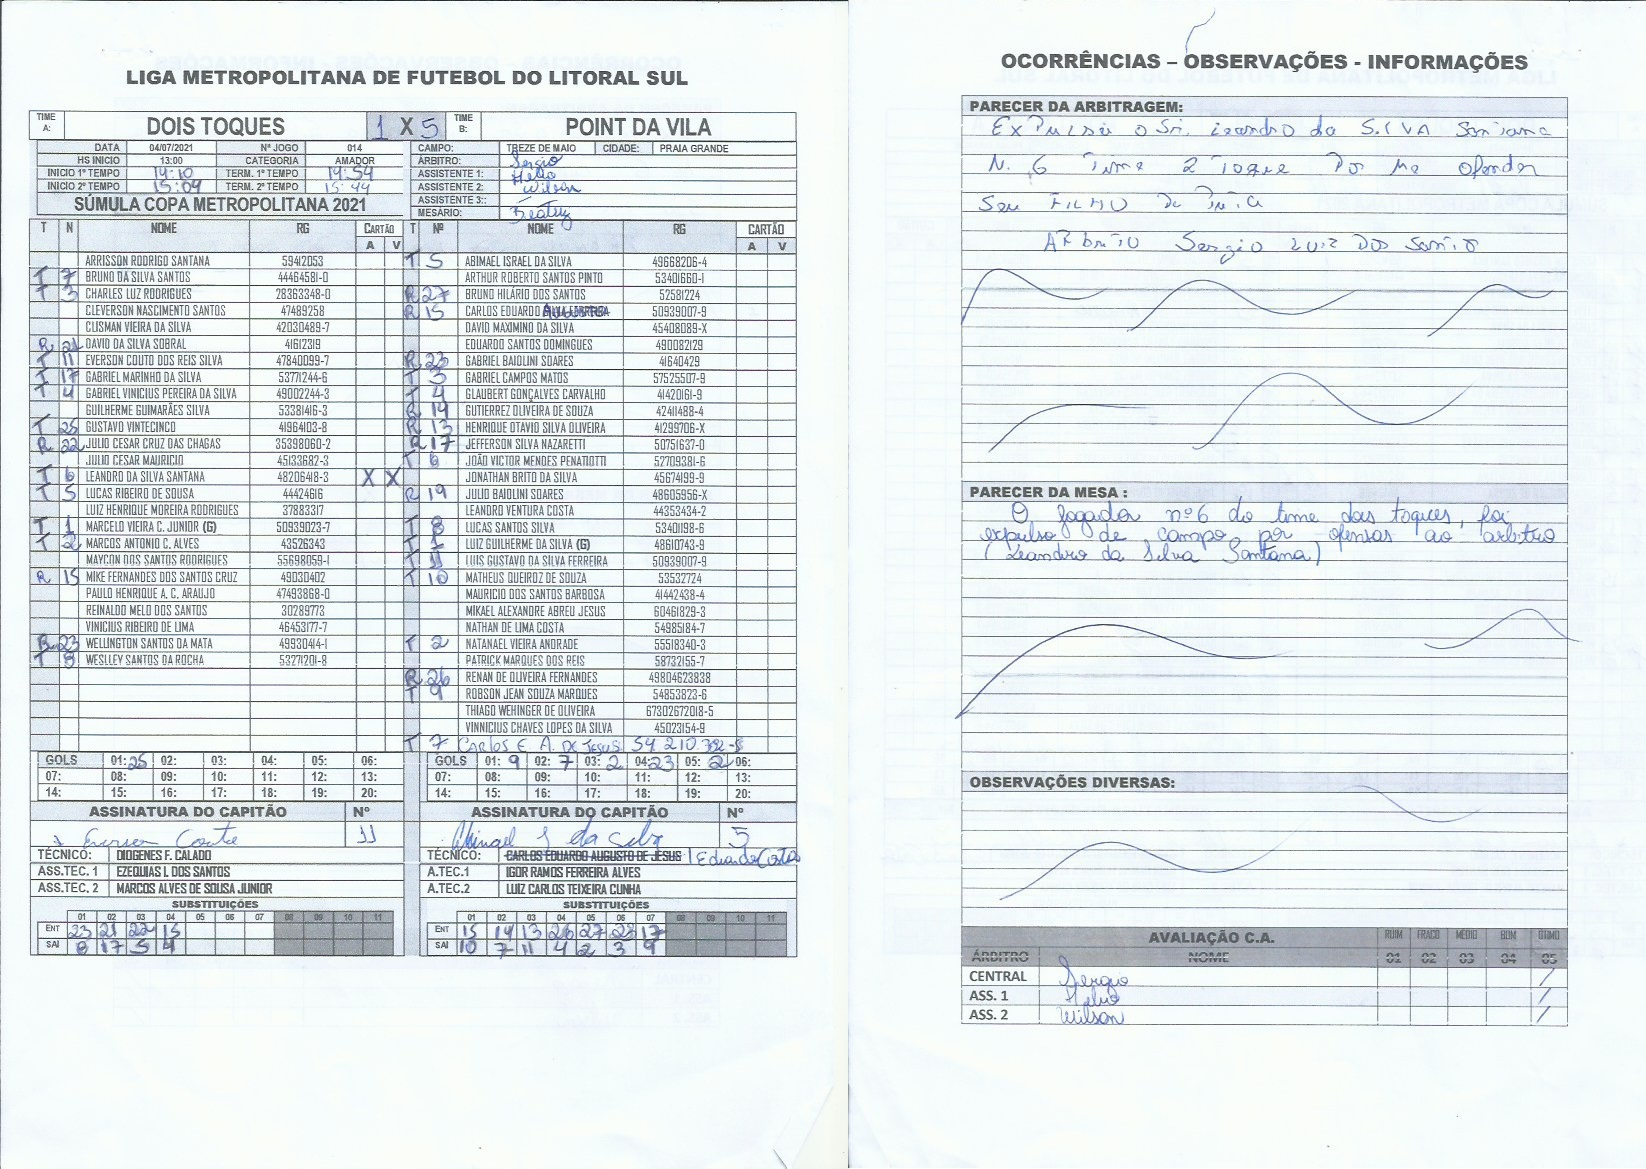 LIGA METROPOLITANA DE FUTEBOL DO LITORAL SUL
TIME A: DOIS TOQUES 1 X 5 TIME B: POINT DA VILA
DATA 04/07/2021 Nº JOGO 014 CAMPO: TREZE DE MAIO CIDADE: PRAIA GRANDE
HS INICIO 13:00 CATEGORIA AMADOR ÁRBITRO: Sergio
INICIO 1º TEMPO 14:10 TERM. 1º TEMPO 14:54 ASSISTENTE 1: Helio
INICIO 2º TEMPO 15:04 TERM. 2º TEMPO 15:44 ASSISTENTE 2: Wilson
ASSISTENTE 3::
SÚMULA COPA METROPOLITANA 2021 MESARIO: Beatriz
T N NOME RG CARTÃO A V
ARRISSON RODRIGO SANTANA 59412053
T 7 BRUNO DA SILVA SANTOS 44464581-0
T 3 CHARLES LUZ RODRIGUES 28363348-0
CLEVERSON NASCIMENTO SANTOS 47489258
CLISMAN VIEIRA DA SILVA 42030489-7
R 21 DAVID DA SILVA SOBRAL 41612319
T 11 EVERSON COUTO DOS REIS SILVA 47840099-7
T 17 GABRIEL MARINHO DA SILVA 53771244-6
T 4 GABRIEL VINICIUS PEREIRA DA SILVA 49002244-3
GUILHERME GUIMARÃES SILVA 53381416-3
T 25 GUSTAVO VINTECINCO 41964103-8
R 22 JULIO CESAR CRUZ DAS CHAGAS 35398060-2
JULIO CESAR MAURICIO 45133682-3
T 6 LEANDRO DA SILVA SANTANA 48206418-3 X X
T 5 LUCAS RIBEIRO DE SOUSA 44424616
LUIZ HENRIQUE MOREIRA RODRIGUES 37883317
T 1 MARCELO VIEIRA C. JUNIOR (G) 50939023-7
T 2 MARCOS ANTONIO C. ALVES 43526343
MAYCON DOS SANTOS RODRIGUES 55698059-1
R 15 MIKE FERNANDES DOS SANTOS CRUZ 49030402
PAULO HENRIQUE A. C. ARAUJO 47493868-0
REINALDO MELO DOS SANTOS 30289773
VINICIUS RIBEIRO DE LIMA 46453177-7
R 23 WELLINGTON SANTOS DA MATA 49930414-1
T 8 WESLLEY SANTOS DA ROCHA 53271201-8
GOLS 01: 25 02: 03: 04: 05: 06:
07: 08: 09: 10: 11: 12: 13:
14: 15: 16: 17: 18: 19: 20:
ASSINATURA DO CAPITÃO Nº
11
TÉCNICO: DIOGENES F. CALADO
ASS.TEC. 1 EZEQUIAS L DOS SANTOS
ASS.TEC. 2 MARCOS ALVES DE SOUSA JUNIOR
SUBSTITUIÇÕES
01 02 03 04 05 06 07 08 09 10 11
ENT 23 21 22 15
SAI 8 17 5 4
T Nº NOME RG CARTÃO A V
T 5 ABIMAEL ISRAEL DA SILVA 49668206-4
ARTHUR ROBERTO SANTOS PINTO 53401660-1
R 27 BRUNO HILÁRIO DOS SANTOS 52581224
R 15 CARLOS EDUARDO 50939007-9
DAVID MAXIMINO DA SILVA 45408089-X
EDUARDO SANTOS DOMINGUES 490082129
R 23 GABRIEL BAIOLINI SOARES 41640429
T 3 GABRIEL CAMPOS MATOS 57525507-9
T 4 GLAUBERT GONÇALVES CARVALHO 41420161-9
R 14 GUTIERREZ OLIVEIRA DE SOUZA 42411488-4
R 13 HENRIQUE OTAVIO SILVA OLIVEIRA 41299706-X
R 17 JEFFERSON SILVA NAZARETTI 50751637-0
T 6 JOÃO VICTOR MENDES PENATIOTTI 52709381-6
JONATHAN BRITO DA SILVA 45674199-9
R 19 JULIO BAIOLINI SOARES 48605956-X
LEANDRO VENTURA COSTA 44353434-2
T 8 LUCAS SANTOS SILVA 53401198-6
T 1 LUIZ GUILHERME DA SILVA (G) 48610743-9
T 11 LUIS GUSTAVO DA SILVA FERREIRA 50939007-9
T 10 MATHEUS QUEIROZ DE SOUZA 53532724
MAURICIO DOS SANTOS BARBOSA 41442438-4
MIKAEL ALEXANDRE ABREU JESUS 60461829-3
NATHAN DE LIMA COSTA 54985184-7
T 2 NATANAEL VIEIRA ANDRADE 55518340-3
PATRICK MARQUES DOS REIS 58732155-7
R 26 RENAN DE OLIVEIRA FERNANDES 49804623838
T 9 ROBSON JEAN SOUZA MARQUES 54853823-6
THIAGO WEHINGER DE OLIVEIRA 67302672018-5
VINNICIUS CHAVES LOPES DA SILVA 45023154-9
T 7 CARLOS E. A. DE JESUS 54.210.792-5
GOLS 01: 9 02: 7 03: 2 04: 23 05: 2 06:
07: 08: 09: 10: 11: 12: 13:
14: 15: 16: 17: 18: 19: 20:
ASSINATURA DO CAPITÃO Nº
Abimael I da Silva 5
TÉCNICO: CARLOS EDUARDO AUGUSTO DE JESUS Eduardo Costa
A.TEC.1 IGOR RAMOS FERREIRA ALVES
A.TEC.2 LUIZ CARLOS TEIXEIRA CUNHA
SUBSTITUIÇÕES
01 02 03 04 05 06 07 08 09 10 11
ENT 15 14 13 26 27 23 17
SAI 10 7 11 4 2 3 9
OCORRÊNCIAS – OBSERVAÇÕES - INFORMAÇÕES
PARECER DA ARBITRAGEM:
Expulsei o Sr. Leandro da Silva Santana
N. 6 Time 2 Toque Por Me Ofender
Seu FILHO da Puta
Arbitro Sergio Luiz dos Santos
PARECER DA MESA :
O jogador nº6 do time dois toques, foi
expulso de campo por ofensas ao arbitro
(Leandro da Silva Santana)
OBSERVAÇÕES DIVERSAS:
AVALIAÇÃO C.A. RUIM FRACO MEDIO BOM OTIMO
ÁRBITRO NOME 01 02 03 04 05
CENTRAL Sergio /
ASS. 1 Helio /
ASS. 2 Wilson /